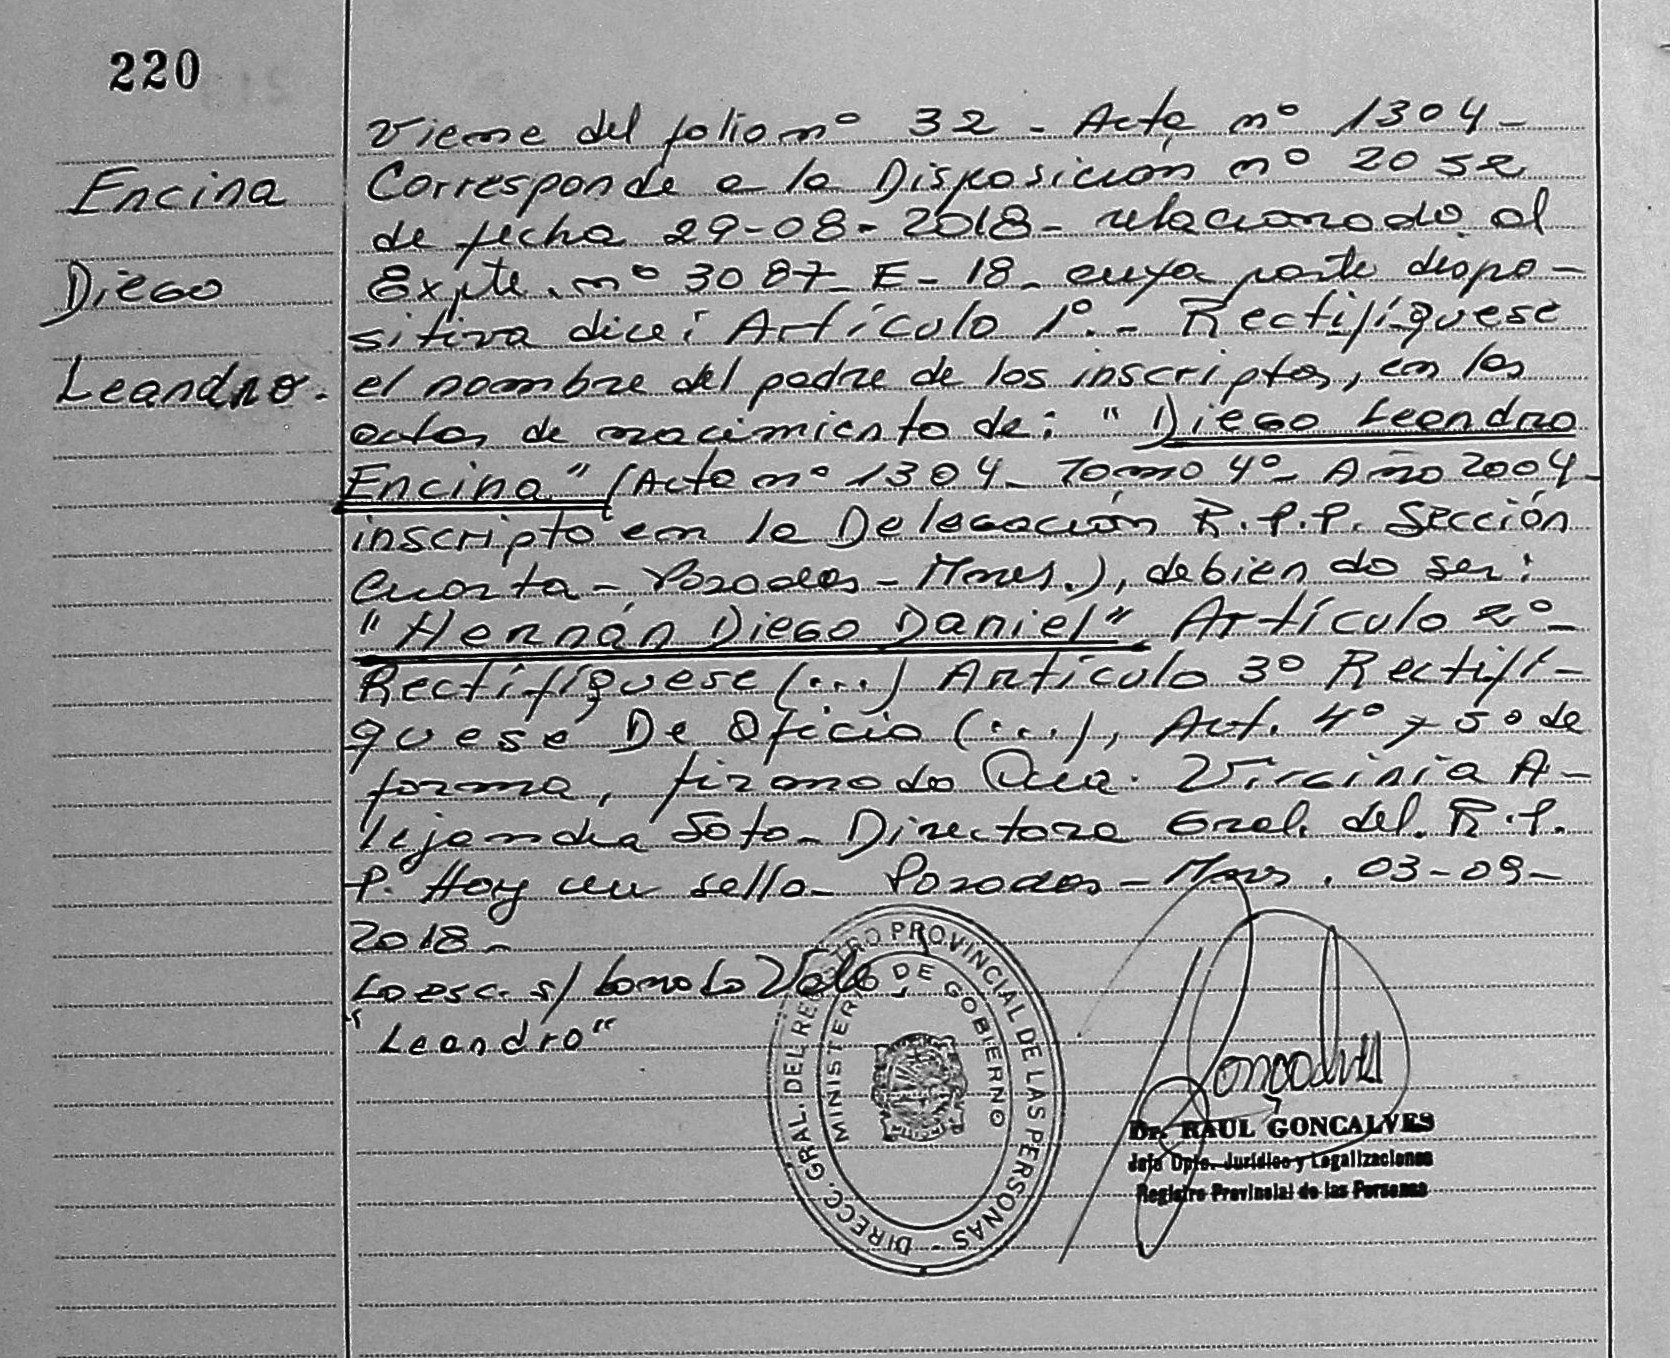 220
Encina
Diego
Leandro.
Viene del folio nº 32 - Acta nº 1304 -
Corresponde a la Disposición nº 2052
de fecha 29-08-2018- relacionado al
Expte. nº 3087- E- 18- cuya parte dispo-
sitiva dice: Artículo 1º.- Rectifíquese
el nombre del padre de los inscriptos, en las
actas de nacimiento de: "Diego Leandro
Encina" (Acta nº 1304- Tomo 4º- Año 2004-
inscripto en la Delegación R.P.P. Sección
Cuarta- Posadas- Mnes.), debiendo ser:
"Hernán Diego Daniel" Artículo 2º-
Rectifíquese (...) Artículo 3º Rectifí-
quese De Oficio (...), Art. 4º y 5º de
forma, firmado Dra. Virginia A-
lejandra Soto- Directora Gral. del R.P.
P. Hay un sello- Posadas- Mnes. 03-09-
2018-
Lo esc. s/ borrado Vale
"Leandro"
DIRECC. GRAL. DEL REGISTRO PROVINCIAL DE LAS PERSONAS -
MINISTERIO DE GOBIERNO
Gonçalves
Dr. RAUL GONCALVES
Jefe Dpto. Jurídico y Legalizaciones
Registro Provincial de las Personas